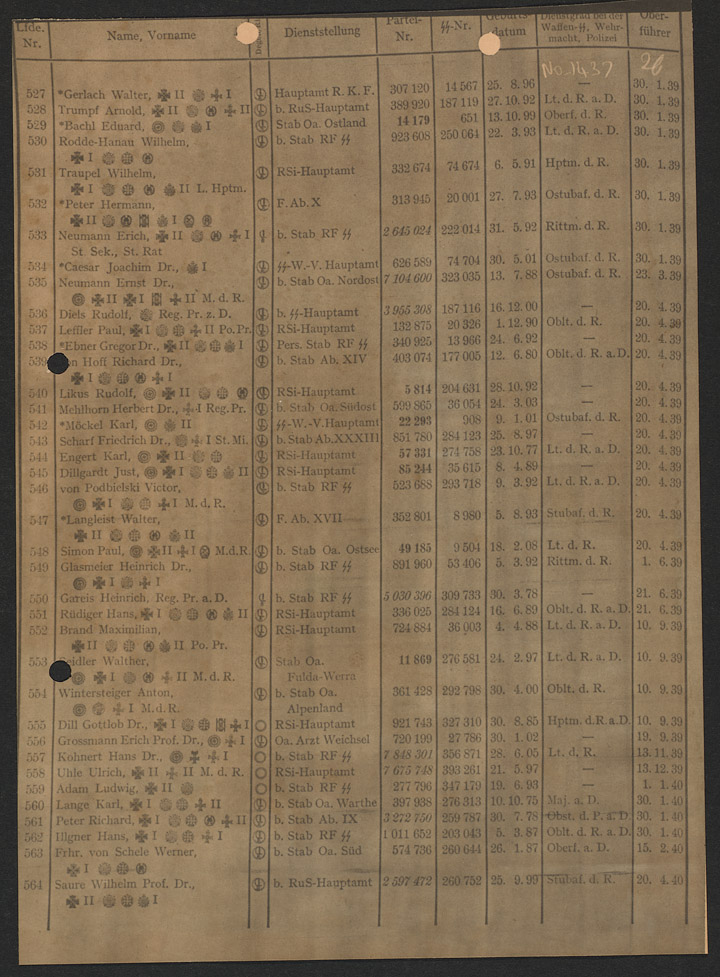 Lfde. Nr. Name, Vorname Dienststellung Partei-Nr. ᛋᛋ-Nr. Geburts-datum Dienstgrad bei der Waffen-ᛋᛋ, Wehr-macht, Polizei Ober-führer
No. 1437 26
527 *Gerlach Walter, II I Hauptamt R. K. F. 307 120 14 567 25. 8. 96 — 30. 1. 39
528 Trumpf Arnold, II II b. RuS-Hauptamt 389 920 187 119 27. 10. 92 Lt. d. R. a. D. 30. 1. 39
529 *Bachl Eduard, I Stab Oa. Ostland 14 179 651 13. 10. 99 Oberf. d. R. 30. 1. 39
530 Rodde-Hanau Wilhelm, b. Stab RF ᛋᛋ 923 608 250 064 22. 3. 93 Lt. d. R. a. D. 30. 1. 39
I
531 Traupel Wilhelm, RSi-Hauptamt 332 674 74 674 6. 5. 91 Hptm. d. R. 30. 1. 39
I II L. Hptm.
532 *Peter Hermann, F. Ab. X 313 945 20 001 27. 7. 93 Ostubaf. d. R. 30. 1. 39
II I
533 Neumann Erich, II I b. Stab RF ᛋᛋ 2 645 024 222 014 31. 5. 92 Rittm. d. R. 30. 1. 39
St. Sek., St. Rat
534 *Caesar Joachim Dr., I ᛋᛋ-W.-V. Hauptamt 626 589 74 704 30. 5. 01 Ostubaf. d. R. 30. 1. 39
535 Neumann Ernst Dr., b. Stab Oa. Nordost 7 104 600 323 035 13. 7. 88 Ostubaf. d. R. 23. 3. 39
II I II M. d. R.
536 Diels Rudolf, Reg. Pr. z. D. b. ᛋᛋ-Hauptamt 3 955 308 187 116 16. 12. 00 — 20. 4. 39
537 Leffler Paul, I II Po. Pr. RSi-Hauptamt 132 875 20 326 1. 12. 90 Oblt. d. R. 20. 4. 39
538 *Ebner Gregor Dr., II I Pers. Stab RF ᛋᛋ 340 925 13 966 24. 6. 92 — 20. 4. 39
539 on Hoff Richard Dr., b. Stab Ab. XIV 403 074 177 005 12. 6. 80 Oblt. d. R. a. D. 20. 4. 39
I I
540 Likus Rudolf, II RSi-Hauptamt 5 814 204 631 28. 10. 92 — 20. 4. 39
541 Mehlhorn Herbert Dr., I Reg. Pr. b. Stab Oa. Südost 599 865 36 054 24. 3. 03 — 20. 4. 39
542 *Möckel Karl, II ᛋᛋ-W.-V. Hauptamt 22 293 908 9. 1. 01 Ostubaf. d. R. 20. 4. 39
543 Scharf Friedrich Dr., I St. Mi. b. Stab Ab. XXXIII 851 780 284 123 25. 8. 97 — 20. 4. 39
544 Engert Karl, II RSi-Hauptamt 57 331 274 758 23. 10. 77 Lt. d. R. a. D. 20. 4. 39
545 Dillgardt Just, I II RSi-Hauptamt 85 244 35 615 8. 4. 89 — 20. 4. 39
546 von Podbielski Victor, b. Stab RF ᛋᛋ 523 688 293 718 9. 3. 92 Lt. d. R. a. D. 20. 4. 39
I I M. d. R.
547 *Langleist Walter, F. Ab. XVII 352 801 8 980 5. 8. 93 Stubaf. d. R. 20. 4. 39
II II
548 Simon Paul, II I M.d.R. b. Stab Oa. Ostsee 49 185 9 504 18. 2. 08 Lt. d. R. 20. 4. 39
549 Glasmeier Heinrich Dr., b. Stab RF ᛋᛋ 891 960 53 406 5. 3. 92 Rittm. d. R. 1. 6. 39
I I
550 Gareis Heinrich, Reg. Pr. a. D. b. Stab RF ᛋᛋ 5 030 396 309 733 30. 3. 78 — 21. 6. 39
551 Rüdiger Hans, I II RSi-Hauptamt 336 025 284 124 16. 6. 89 Oblt. d. R. a. D. 21. 6. 39
552 Brand Maximilian, RSi-Hauptamt 724 884 36 003 4. 4. 88 Lt. d. R. a. D. 10. 9. 39
II II Po. Pr.
553 eidler Walther, Stab Oa. Fulda-Werra 11 869 276 581 24. 2. 97 Lt. d. R. a. D. 10. 9. 39
I II M. d. R.
554 Wintersteiger Anton, b. Stab Oa. Alpenland 361 428 292 798 30. 4. 00 Oblt. d. R. 10. 9. 39
I M. d. R.
555 Dill Gottlob Dr., I I RSi-Hauptamt 921 743 327 310 30. 8. 85 Hptm. d.R.a.D. 10. 9. 39
556 Grossmann Erich Prof. Dr., I Oa. Arzt Weichsel 720 199 27 786 30. 1. 02 — 19. 9. 39
557 Kohnert Hans Dr., I b. Stab RF ᛋᛋ 7 848 301 356 871 28. 6. 05 Lt. d. R. 13. 11. 39
558 Uhle Ulrich, II II M. d. R. RSi-Hauptamt 7 675 748 393 261 21. 5. 97 — 13. 12. 39
559 Adam Ludwig, II b. Stab RF ᛋᛋ 277 796 347 179 19. 6. 93 — 1. 1. 40
560 Lange Karl, I II b. Stab Oa. Warthe 397 938 276 313 10. 10. 75 Maj. a. D. 30. 1. 40
561 Peter Richard, I II b. Stab Ab. IX 3 272 750 259 787 30. 7. 78 Obst. d. P. a. D. 30. 1. 40
562 Illgner Hans, I I b. Stab RF ᛋᛋ 1 011 652 203 043 5. 3. 87 Oblt. d. R. a. D. 30. 1. 40
563 Frhr. von Schele Werner, b. Stab Oa. Süd 574 736 260 644 26. 1. 87 Oberf. a. D. 15. 2. 40
I
564 Saure Wilhelm Prof. Dr., b. RuS-Hauptamt 2 597 472 260 752 25. 9. 99 Stubaf. d. R. 20. 4. 40
II I